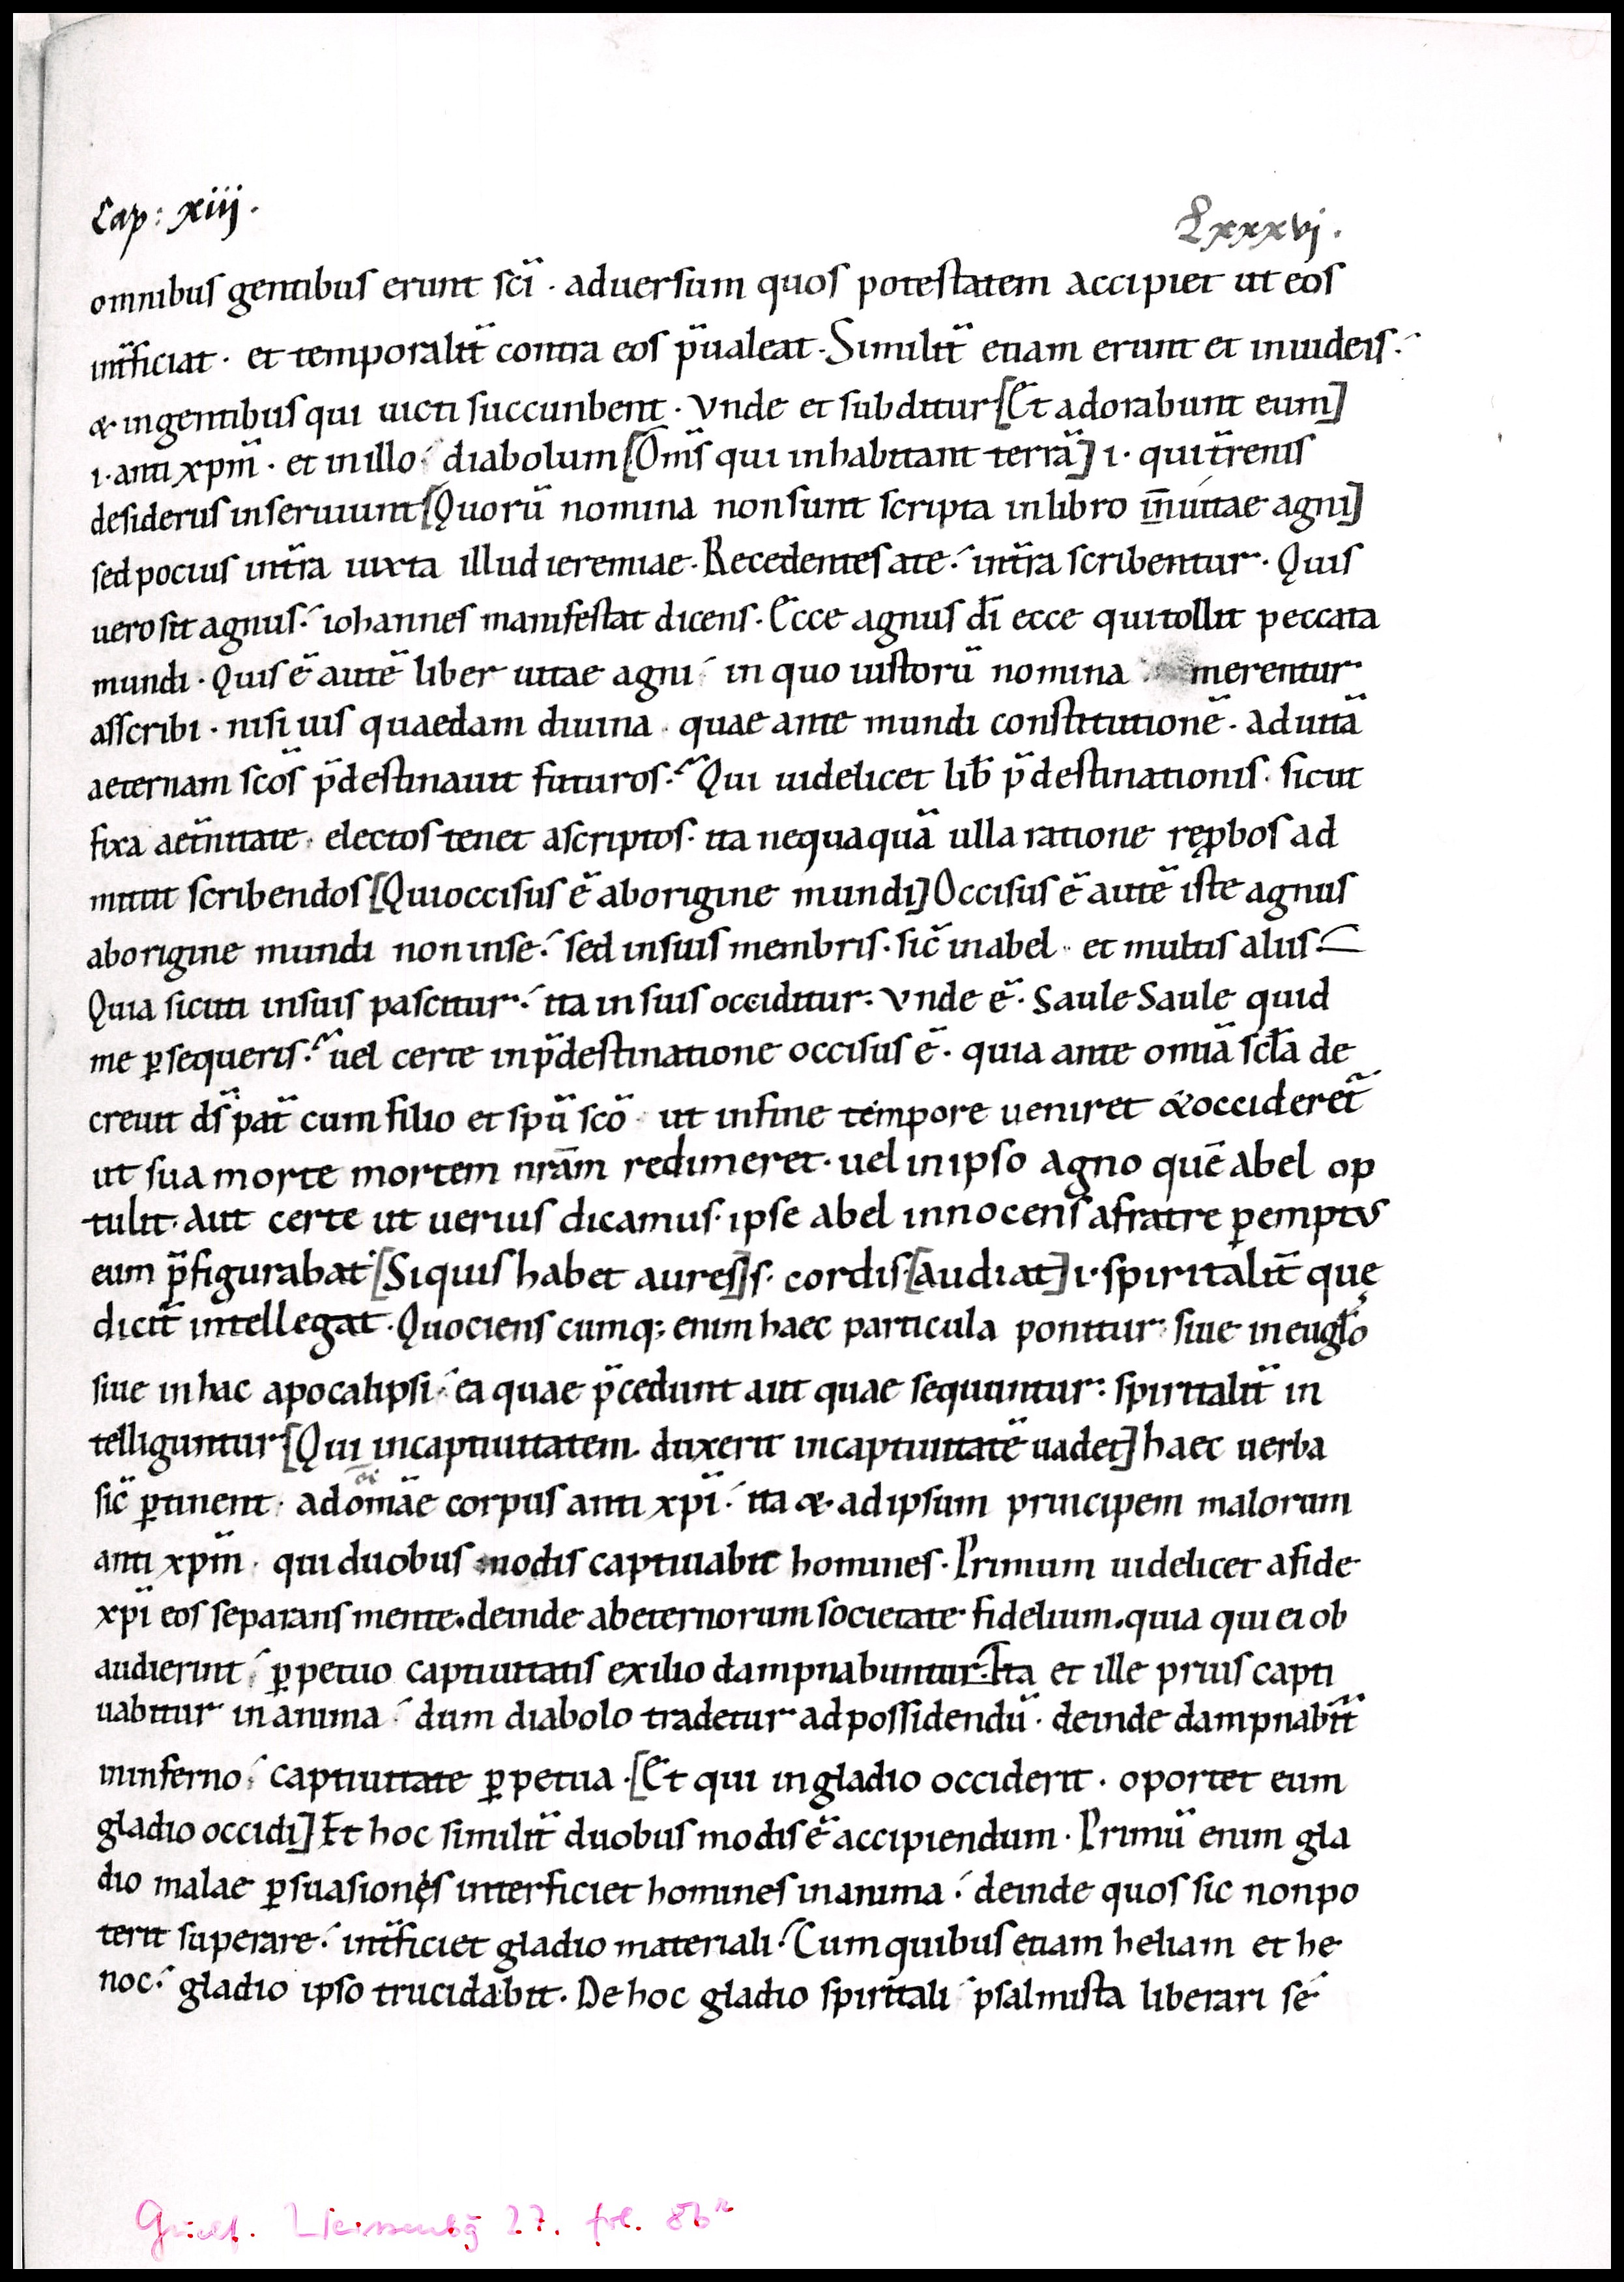 Cap: xiij.
Lxxxvj.
omnibus gentibus erunt sc̅i · aduersum quos potestatem accipiet ut eos
int̅ficiat · et temporalit̅ contra eos p̅ualeat · Similit̅ etiam erunt et iniudeis
& ingentibus qui uicti succunbent · vnde et subditur [Et adorabunt eum]
i · anti xp̅m · et inillo diabolum [Om̅s qui inhabitant terra̅] i · quit̅renis
desideriis inseruiunt [Quoru̅ nomina nonsunt scripta inlibro uitae agni]
sed pocius int̅ra iuxta illud ieremiae · Recedentes ate int̅ra scribentur · Quis
uero sit agnus iohannes manifestat dicens · Ecce agnus d̅i ecce quitollit peccata
mundi · Quis e̅ aute̅ liber uitae agni in quo iustoru̅ nomina merentur
asscribi · nisi uis quaedam diuina · quae ante mundi constitutione̅ · aduita̅
aeternam sc̅os p̅destinauit futuros · Qui uidelicet lib̅ p̅destinationis · sicut
fixa aet̅nitate · electos tenet ascriptos · ita nequaqua̅ ulla ratione rep̱bos ad
mittit scribendos [Quioccisus e̅ aborigine mundi] Occisus e̅ aute̅ iste agnus
aborigine mundi non inse · sed insuis membris · sic̅ inabel · et multis aliis
Quia sicuti insuis pascitur · ita in suis occiditur : vnde e̅ · Saule Saule quid
me p̱sequeris · uel certe inp̅destinatione occisus e̅ · quia ante om̅ia scl̅a de
creuit d̅s pat̅ cum filio et spu̅ sc̅o · ut infine tempore ueniret &occideret̅
ut sua morte mortem nr̅am redimeret · uel inipso agno que̅ abel op
tulit · Aut certe ut uerius dicamus · ipse abel innocens afratre p̱emptus
eum p̅figurabat [Siquis habet aures] s · cordis [audiat] i · spiritalit̅ que
dicit̅ intellegat · Quociens cumq; enim haec particula ponitur siue ineugl̅o
siue inhac apocalipsi ea quae p̅cedunt aut quae sequuntur : spiritalit̅ in
telliguntur [Qui incaptiuitatem duxerit incaptiuitate̅ uadet] haec uerba
sic̅ p̱tinent · adom̅e corpus anti xp̅i ita & adipsum principem malorum
anti xp̅m · qui duobus modis captiuabit homines · Primum uidelicet afide
xp̅i eos separans mente · deinde abeternorum societate fidelium · quia qui ei ob
audierint p̱petuo captiuitatis exilio dampnabuntur · Ita et ille prius capti
uabitur inanima dum diabolo tradetur adpossidendu̅ · deinde dampnabit̅
ininferno captiuitate p̱petua · [Et qui ingladio occiderit · oportet eum
gladio occidi] Et hoc similit̅ duobus modis e̅ accipiendum · Primu̅ enim gla
dio malae p̱suasiones interficiet homines inanima · deinde quos sic nonpo
terit superare int̅ficiet gladio materiali · Cum quibus etiam heliam et he
noc gladio ipso trucidabit · De hoc gladio spiritali psalmista liberari se
Guelf. Weissenbg 27. fol. 86r